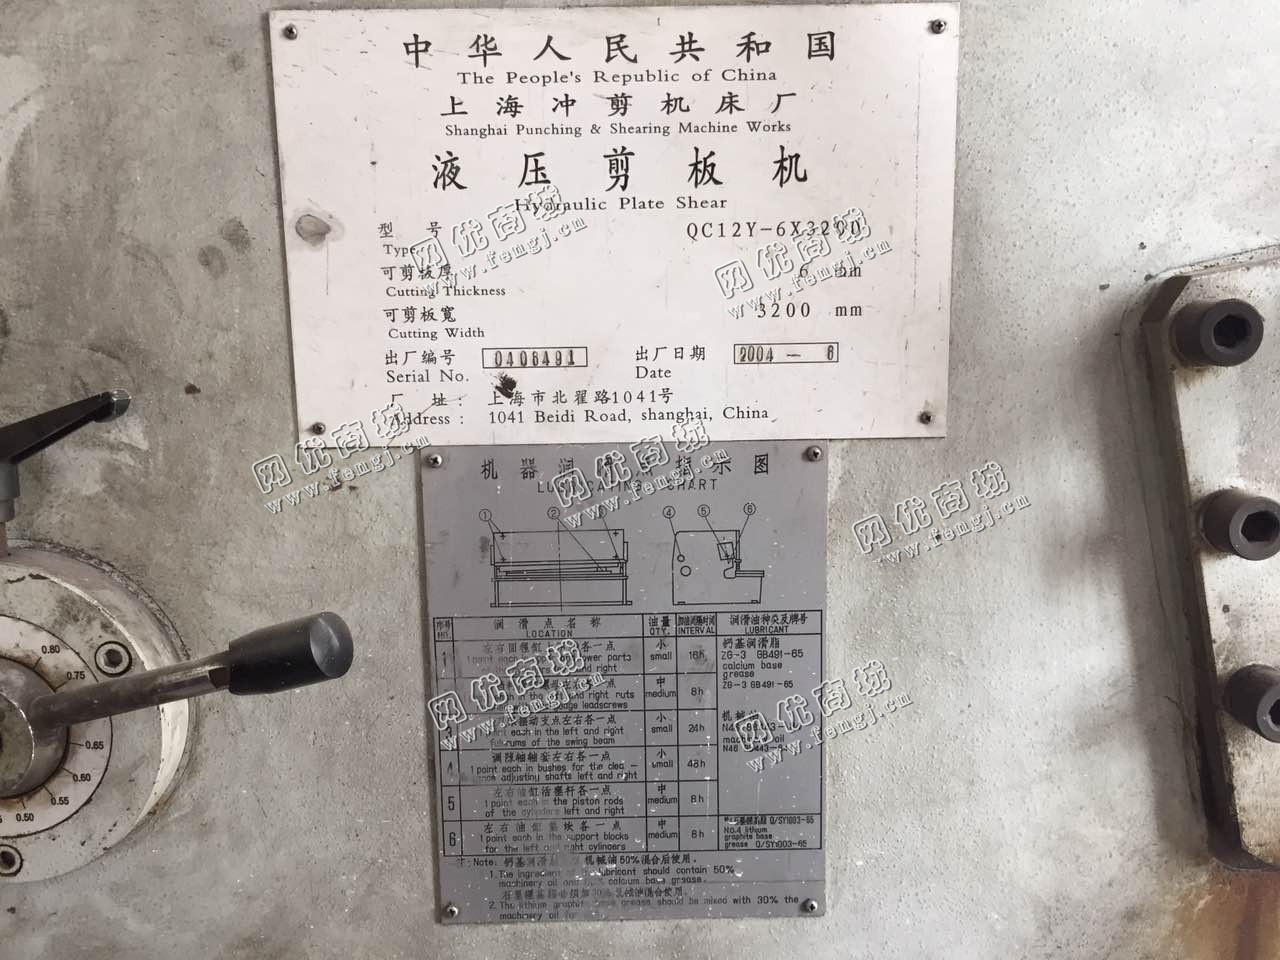 中华人民共和国
The People's Republic of China
上海冲剪机床厂
Shanghai Punching & Shearing Machine Works
液压剪板机
Hydraulic Plate Shear
型 号 QC12Y-6X3200
Type
可剪板厚 6 mm
Cutting Thickness
可剪板宽 3200 mm
Cutting Width
出厂编号 0406491 出厂日期 2004-6
Serial No. Date
厂 址： 上海市北翟路1041号
Address : 1041 Beidi Road, shanghai, China
机器润 示图
LUBRICATING CHART
① ② ④ ⑤ ⑥
序号 润滑点名称 油量 加油间隔时间 润滑油种类及牌号
NO. LOCATION QTY. INTERVAL LUBRICANT
1 左右回程缸上 各一点 小 16h 钙基润滑脂
1 point each in lower parts small ZG-3 GB491-65
and right calcium base
grease
左右各一点 中 8h ZG-3 GB491-65
in the left and right nuts medium
leadscrews
3 摆动支点左右各一点 小 24h 机械
1 point each in the left and right small N46
fulcrums of the swing beam oil
4 调隙轴轴套左右各一点 小 48h N46
1 point each in bushes for the clea- small
rance adjusting shafts left and right
5 左右油缸活塞杆各一点 中 8h
1 point each in the piston rods medium
of the cylinders left and right
6 左右油缸 各一点 中 8h Q/SY1003-65
1 point each in the support blocks medium No.4 lithium
for the left and right cylinders graphite base
grease Q/SY1003-65
注:Note. 钙基润滑 机械油50%混合后使用.
1. The ingredient of lubricant should contain 50%
machinery oil and calcium base grease.
30% 混合使用.
2. The lithium graphite base grease should be mixed with 30% the
machinery oil for
0.80
0.75
0.65
0.60
0.55
0.50
网优商城
www.fengj.cn
网优商城
www.fengj.cn
网优商城
www.fengj.cn
网优商城
www.fengj.cn
网优商城
www.fengj.cn
网优商城
www.fengj.cn
网优商城
www.fengj.cn